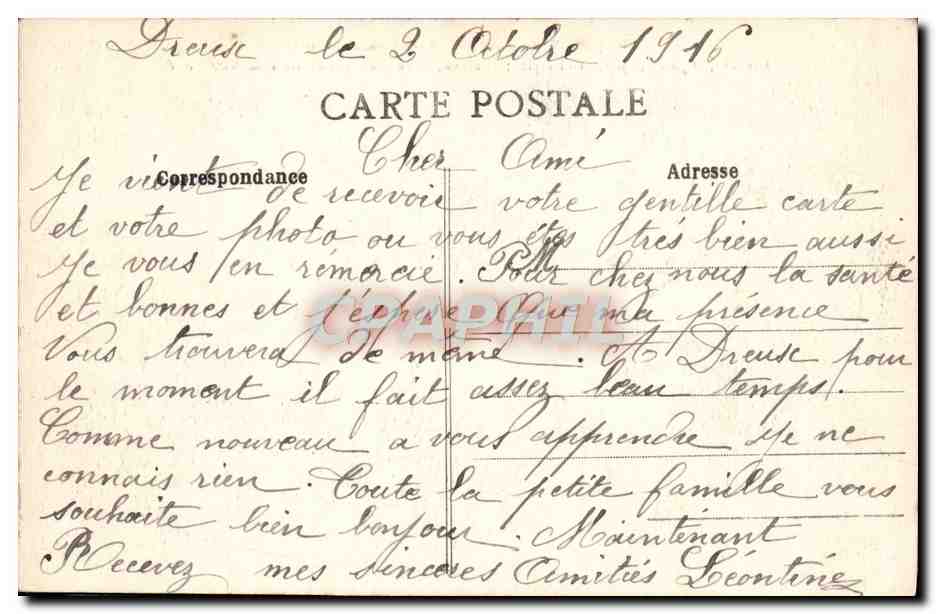 Dreux le 2 Octobre 1916
CARTE POSTALE
Cher Ami
Correspondance
Adresse
Je vient de recevoir votre gentille carte
et votre photo ou vous étes trés bien aussi
Je vous en rémercie. Pour chez nous la santé
et bonnes et j'éspere que ma présence
Vous trouvera de même. A Dreux pour
le moment il fait assez beau temps.
Comme nouveau a vous apprendre Je ne
connais rien. Toute la petite famille vous
souhaite bien bonjour. Maintenant
Recevez mes sinceres Amitiés Léontine
CPAPHIL